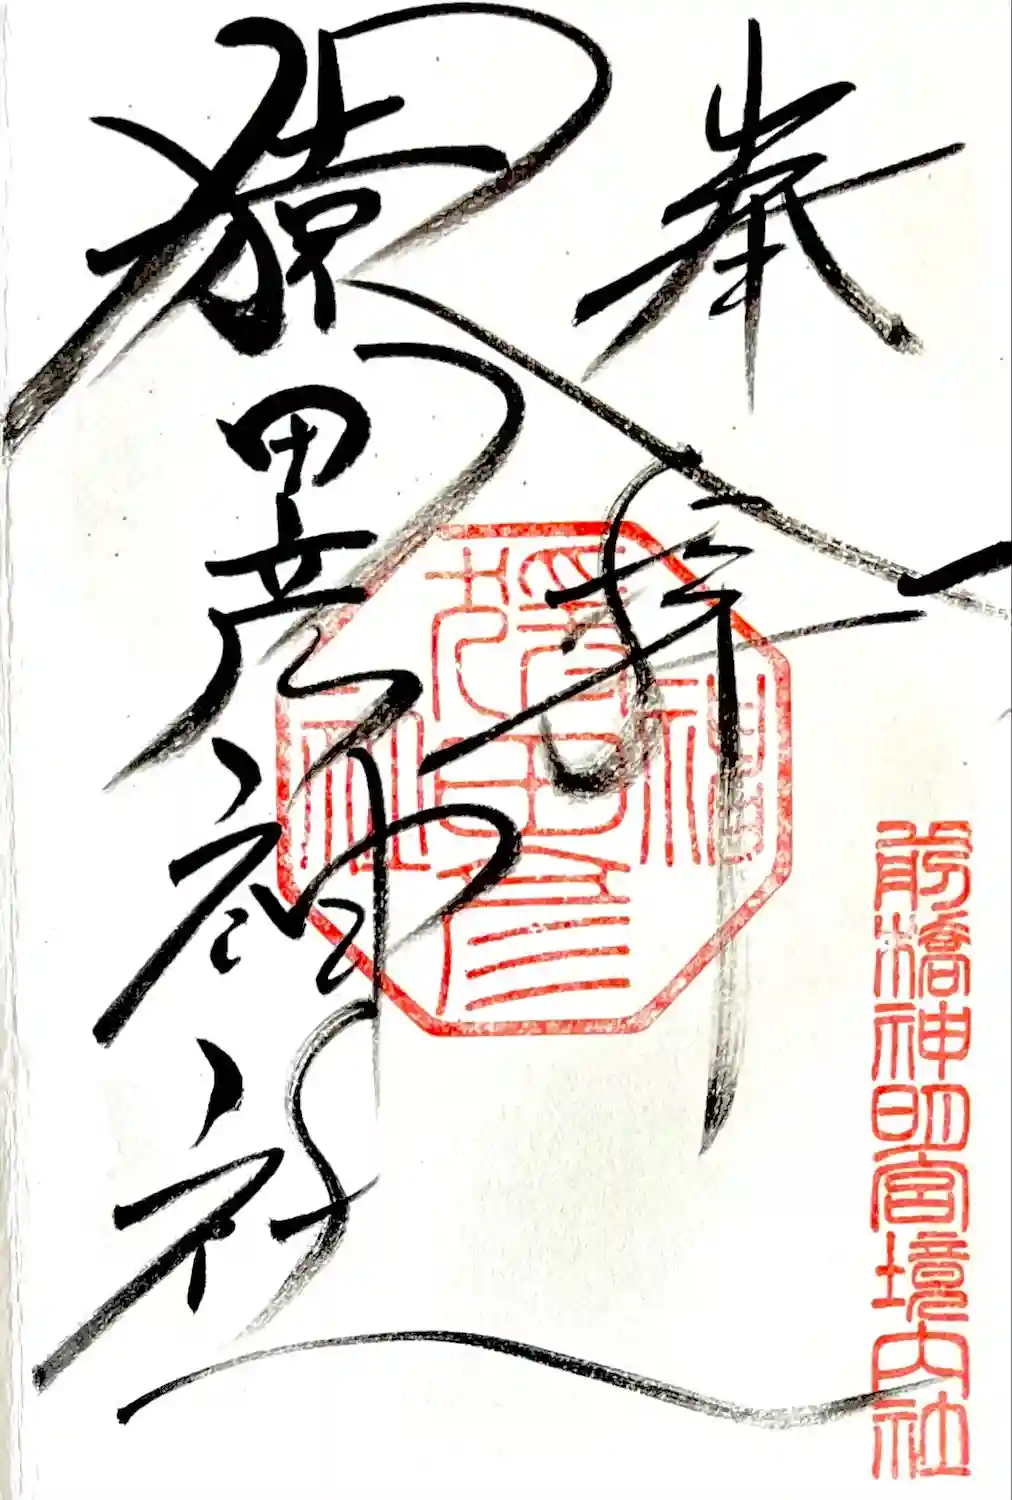 奉拝
前橋神明宮境内社
猿田彦神社
猿田彦
神社